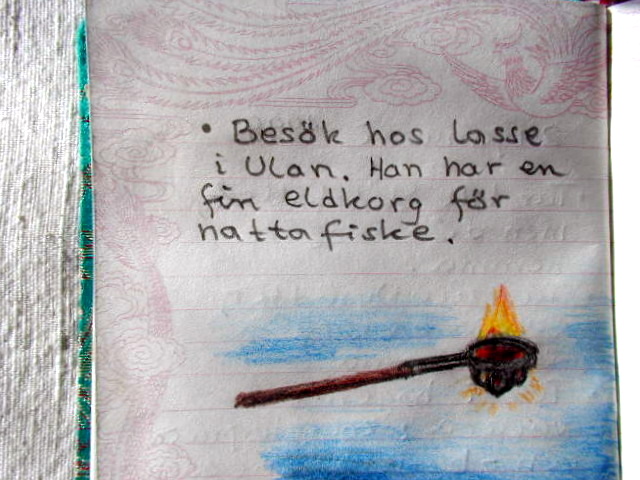 • Besök hos Lasse
i Ulan. Han har en
fin eldkorg för
nattafiske.